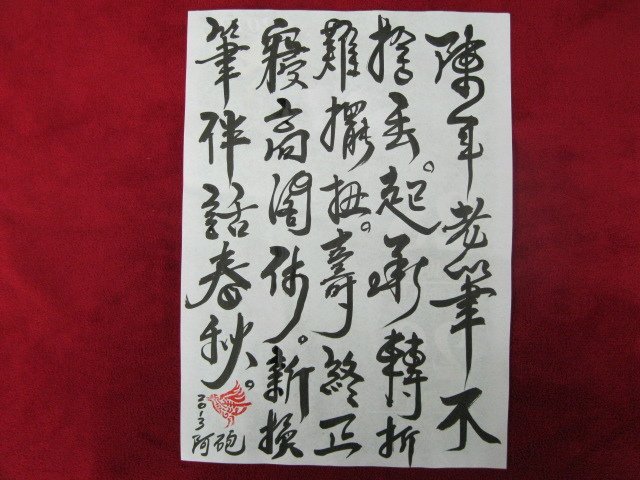 陳年老筆不
捨丟。起承轉折
難擺扭。壽終正
寢高閣休。新換
筆伴話春秋。
2013
阿砲